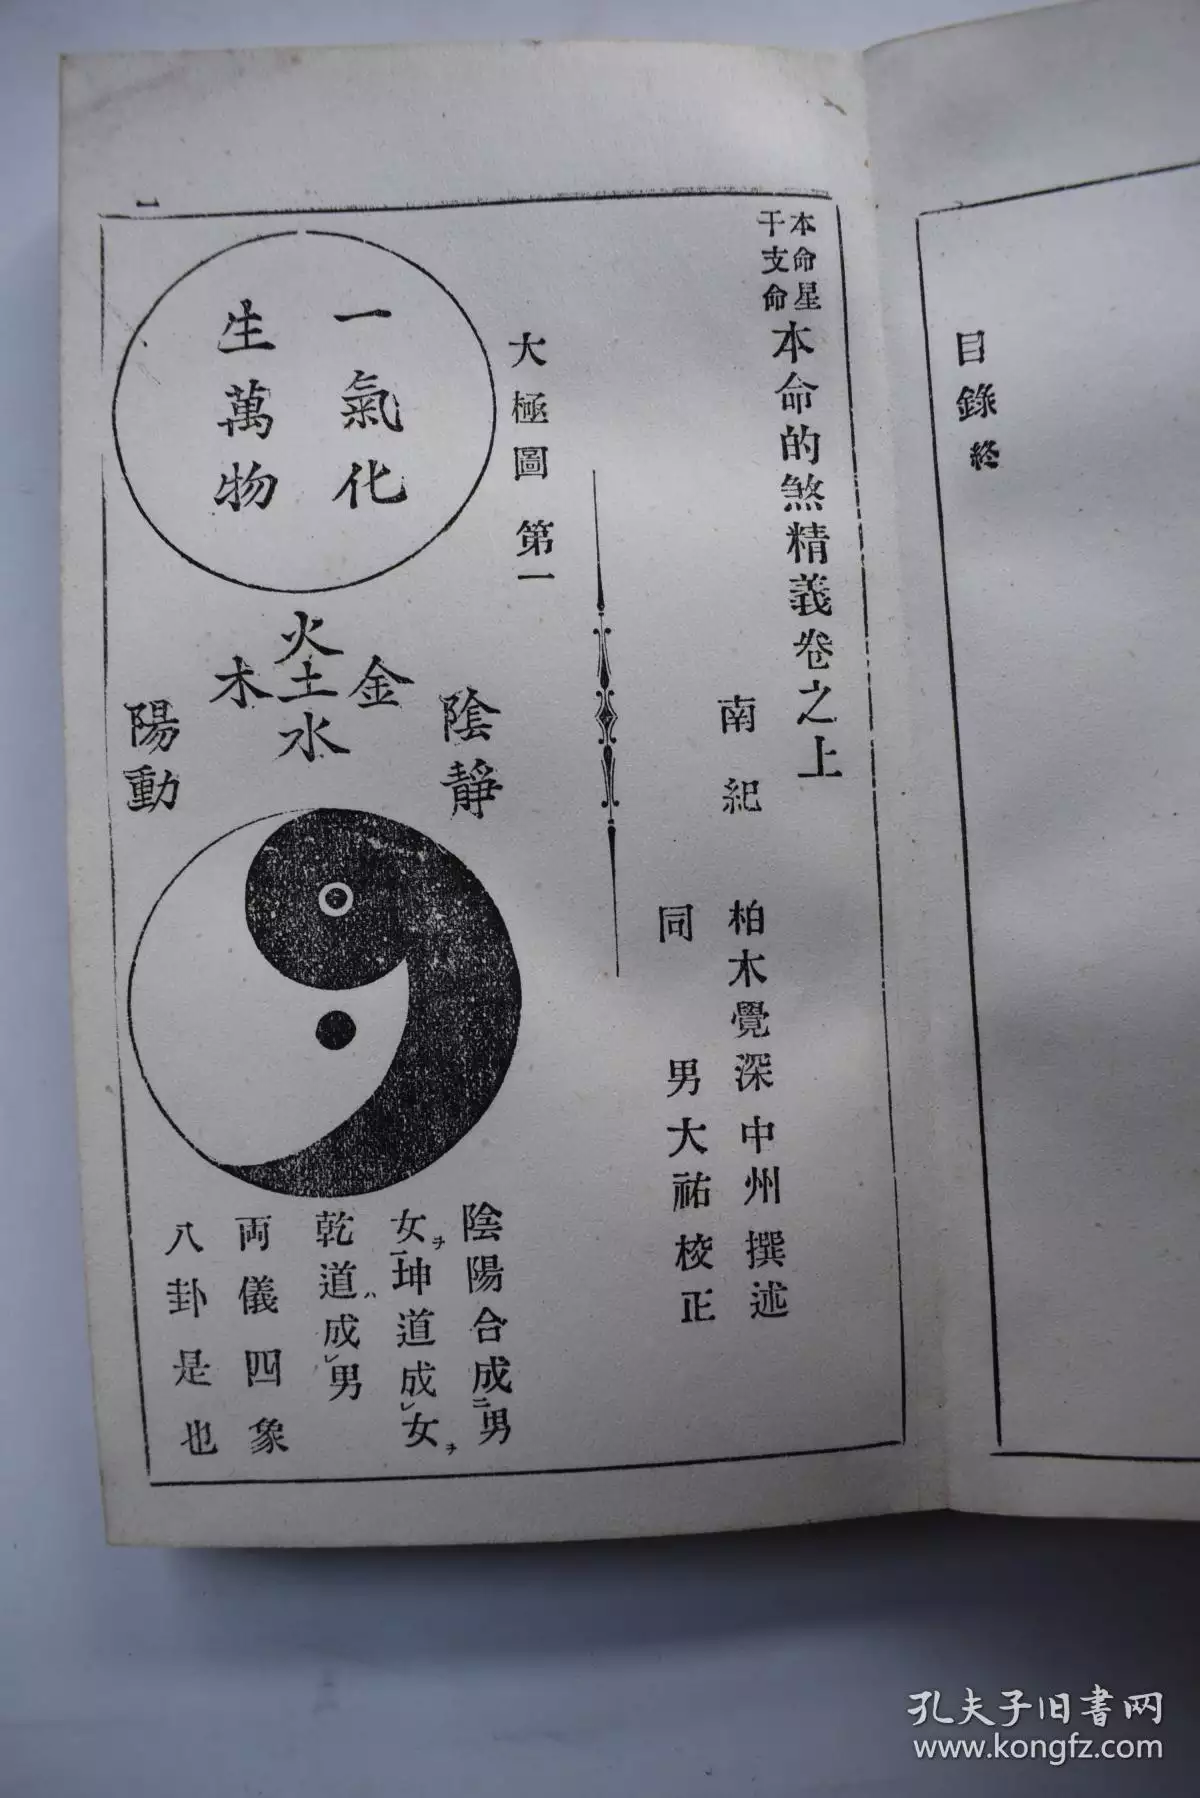 目錄終
本命星
干支命
本命的煞精義卷之上
南紀 柏木覺深中州撰述
同 男大祐校正
大極圖 第一
一氣化
生萬物
火
金土木
水
陰靜
陽動
陰陽合成二男
女ヲ一坤道成レ女ヲ
乾道ハ成レ男
両儀四象
八卦是也
一
孔夫子旧书网
www.kongfz.com